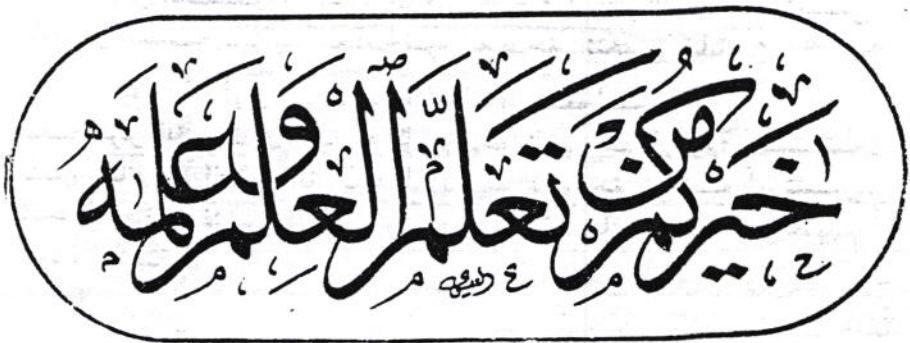 خَيْرُكُمْ مَنْ تَعَلَّمَ ٱلْعِلْمَ وَعَلَّمَهُ